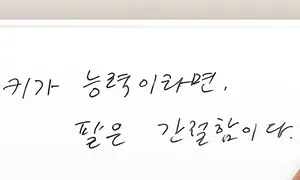 키가 능력이라면,
팔은 간절함이다.